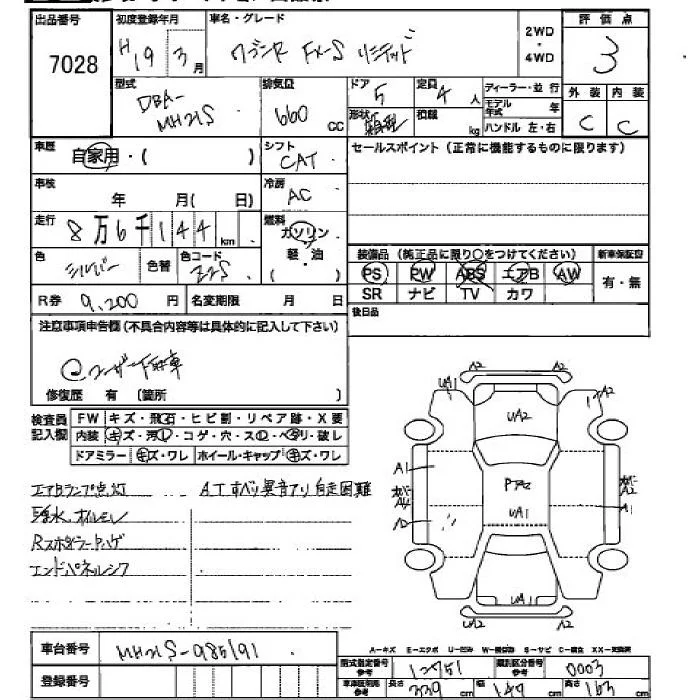 出品番号 初度登録年月 車名・グレード 2WD・4WD 評価点
7028 H19 3月 ワゴンR FX-S リミテッド 3
型式 排気量 ドア 定員 ディーラー・並行 外装 内装
DBA-MH21S 660 CC 5 4人 モデル年式 年 C C
形状 積載 kg ハンドル 左・右
車歴 自家用・( ) シフト CAT セールスポイント(正常に機能するものに限ります)
車検 年 月( 日) 冷房 AC
走行 8万6千144km 燃料 ガソリン 軽・油
色 シルバー 色替 色コード Z2S 装備品(純正品に限り○をつけてください) 新車保証書
PS PW ABS エアB AW 有・無
R券 9,200円 名変期限 月 日 SR ナビ TV カワ
後日品
注意事項申告欄(不具合内容等は具体的に記入して下さい)
修復歴 有 (箇所 )
検査員記入欄 FW キズ・飛石・ヒビ割・リペア跡・X要
内装 キズ・汚レ・コゲ・穴・スレ・ベタリ・破レ
ドアミラー キズ・ワレ ホイール・キャップ キズ・ワレ
エアBランプ点灯 ATすべり異音アリ自走困難
オイルモレ
Rスポイラーハゲ
エンドパネルシワ
A2 A2
UA1 A2
UA2
A1 A2
A1
A2
UA1
UA1
A2 A2
A-キズ E-エクボ U-凹み W-補修跡 S-サビ C-腐食 XX-交換済
車台番号 MH21S-985191 型式指定番号 参考 12951 類別区分番号 参考 0003
登録番号 長さ 339cm 幅 149cm 高さ 163cm